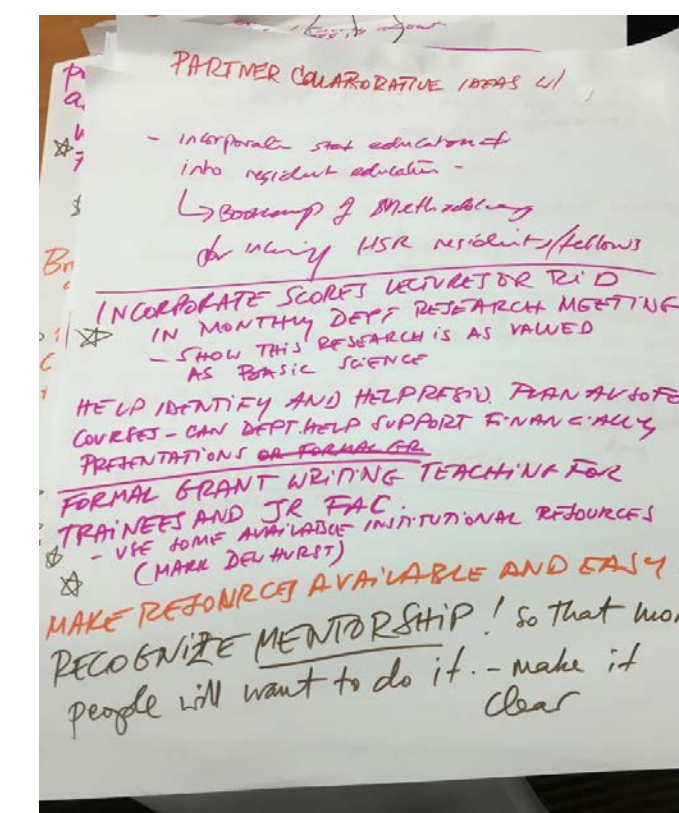 PARTNER COLLABORATIVE IDEAS W/
- incorporate stat education
into resident education -
↳ Bootcamp of Methodology
for incoming HSR residents/fellows
INCORPORATE SCORES LECTURES OR
IN MONTHLY DEPT RESEARCH MEETING
- SHOW THIS RESEARCH IS AS VALUED
AS BASIC SCIENCE
HELP IDENTIFY AND HELP PLAN
COURSES - CAN DEPT. HELP SUPPORT FINANCIALLY
PRESENTATIONS OR FORMAL GR
FORMAL GRANT WRITING TEACHING FOR
TRAINEES AND JR FAC.
- USE SOME AVAILABLE INSTITUTIONAL RESOURCES
(MARK DEWHURST)
MAKE RESOURCES AVAILABLE AND EASY
RECOGNIZE MENTORSHIP! so that
people will want to do it. - make it
clear